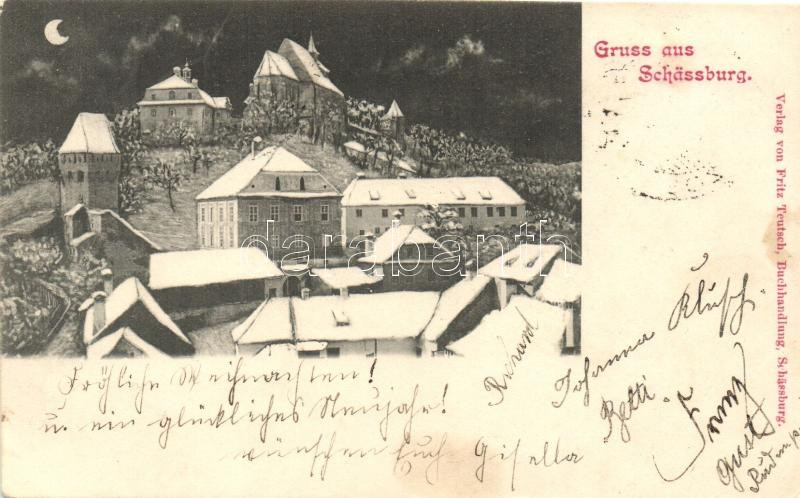 Gruss aus
Schässburg.
Verlag von Fritz Teutsch, Buchhandlung, Schässburg.
darabanth.com
Fröhliche Weihnachten!
u. ein glückliches Neujahr!
wünschen Euch Gisella
Richard
Johanna
Betti
Gust